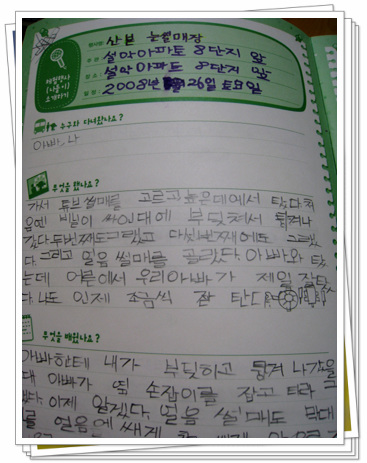 행사명: 산본 눈썰매장
주관: 설악아파트 8단지 앞
장소: 설악아파트 8단지 앞
일정: 2008년 26일 토요일
체험행사
(나들이)
소개하기
누구와 다녀왔나요?
아빠, 나
무엇을 했나요?
가서 튜브썰매를 고르고 높은데에서 탔다. 처
음엔 빙빙이 쌓인대에 부딪쳐서 튕겨나
갔다 두번째도 그랬고 다섯번째에도 그랬
다. 그리고 얼음 썰매를 골랐다. 아빠와 탔
는데 어른에서 우리아빠가 제일 잘탔
다. 나도 인제 조금씩 잘 탄다
무엇을 배웠나요?
아빠한테 내가 부딪하고 튕겨 나갔을
대 아빠가 옆 손잡이를 잡고 타라 그
랬다. 이제 알겠다. 얼음 썰매도 막대
를 얼음에 쌔게